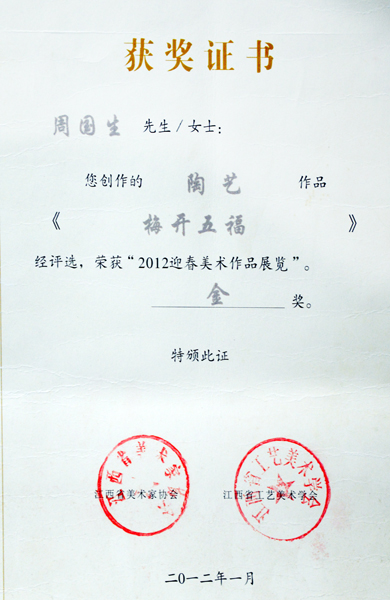 获奖证书
周国生 先生/女士：
您创作的 陶艺 作品
《 梅开五福 》
经评选，荣获“2012迎春美术作品展览”。
金 奖。
特颁此证
江西省美术家协会 江西省工艺美术学会
江西省美术家协会 江西省工艺美术学会
二〇一二年一月